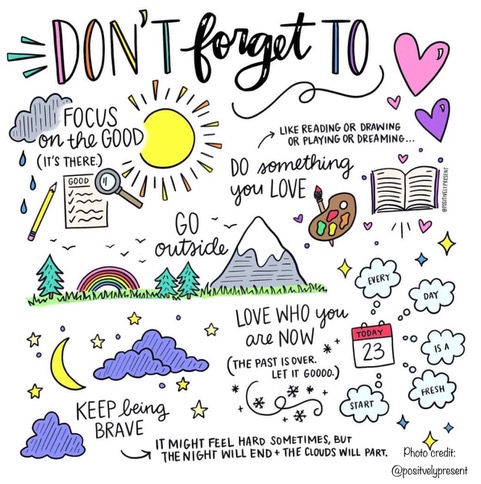 DON'T forget TO
FOCUS
on the GOOD
(IT'S THERE.)
GOOD
LIKE READING OR DRAWING
OR PLAYING OR DREAMING...
DO something
you LOVE
@POSITIVELYPRESENT
GO
outside
LOVE WHO you
are NOW
(THE PAST IS OVER.
LET IT GOOOD.)
TODAY
23
EVERY
DAY
IS A
FRESH
START
KEEP being
BRAVE
IT MIGHT FEEL HARD SOMETIMES, BUT
THE NIGHT WILL END + THE CLOUDS WILL PART.
Photo credit:
@positvelypresent